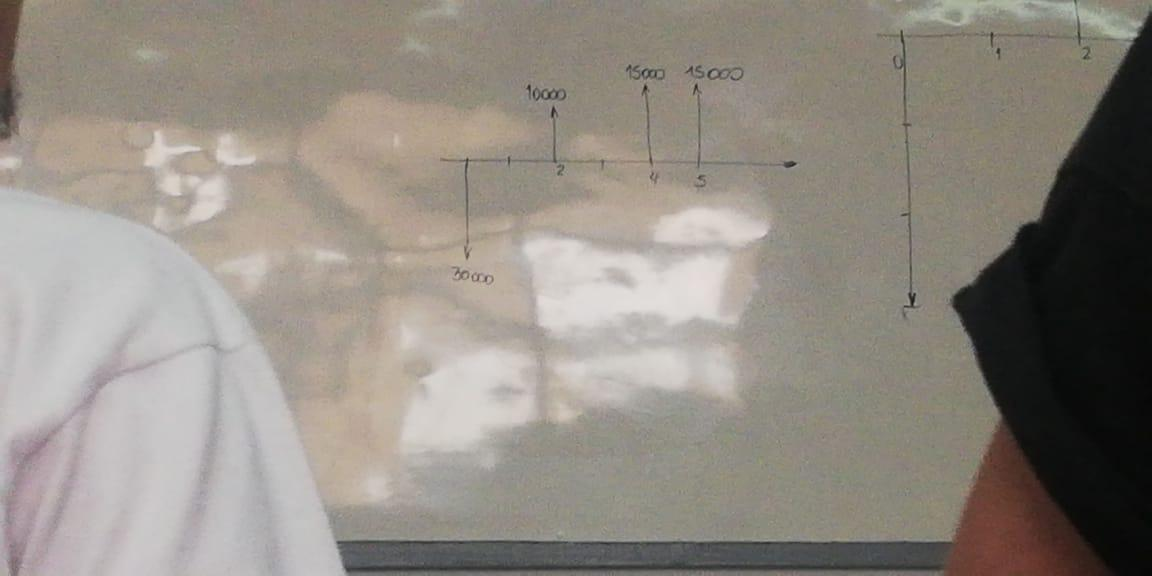 15000 15000
10000
2 4 5
30000
0 1 2